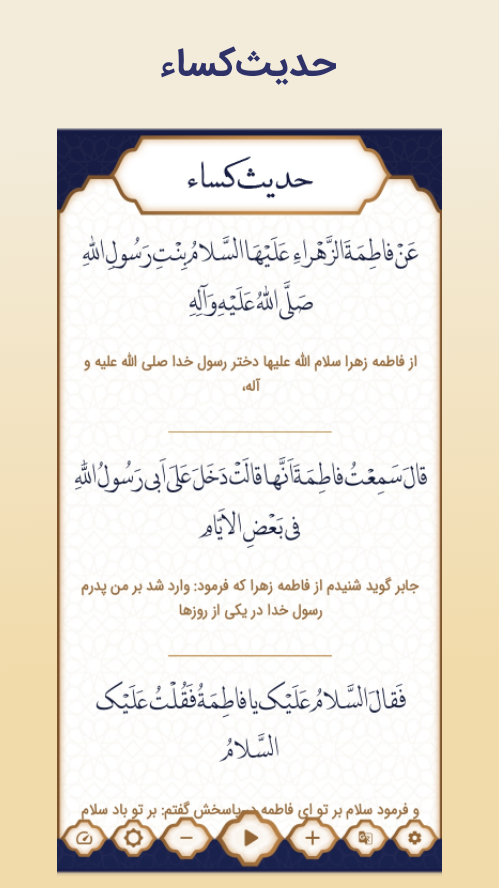 حدیث کساء
حدیث کساء
عَنْ فاطِمَةَ الزَّهْراءِ عَلَیْهَا السَّلامُ بِنْتِ رَسُولِ اللّٰهِ
صَلَّى اللّٰهُ عَلَیْهِ وَآلِهِ
از فاطمه زهرا سلام الله علیها دختر رسول خدا صلی الله علیه و
آله،
قالَ سَمِعْتُ فاطِمَةَ اَنَّها قالَتْ دَخَلَ عَلَىَّ اَبى رَسُولُ اللّٰهِ
فى بَعْضِ الاَْیَّامِ
جابر گوید شنیدم از فاطمه زهرا که فرمود: وارد شد بر من پدرم
رسول خدا در یکی از روزها
فَقالَ السَّلامُ عَلَیْکِ یا فاطِمَةُ فَقُلْتُ عَلَیْکَ
السَّلامُ
و فرمود سلام بر تو ای فاطمه در پاسخش گفتم: بر تو باد سلام